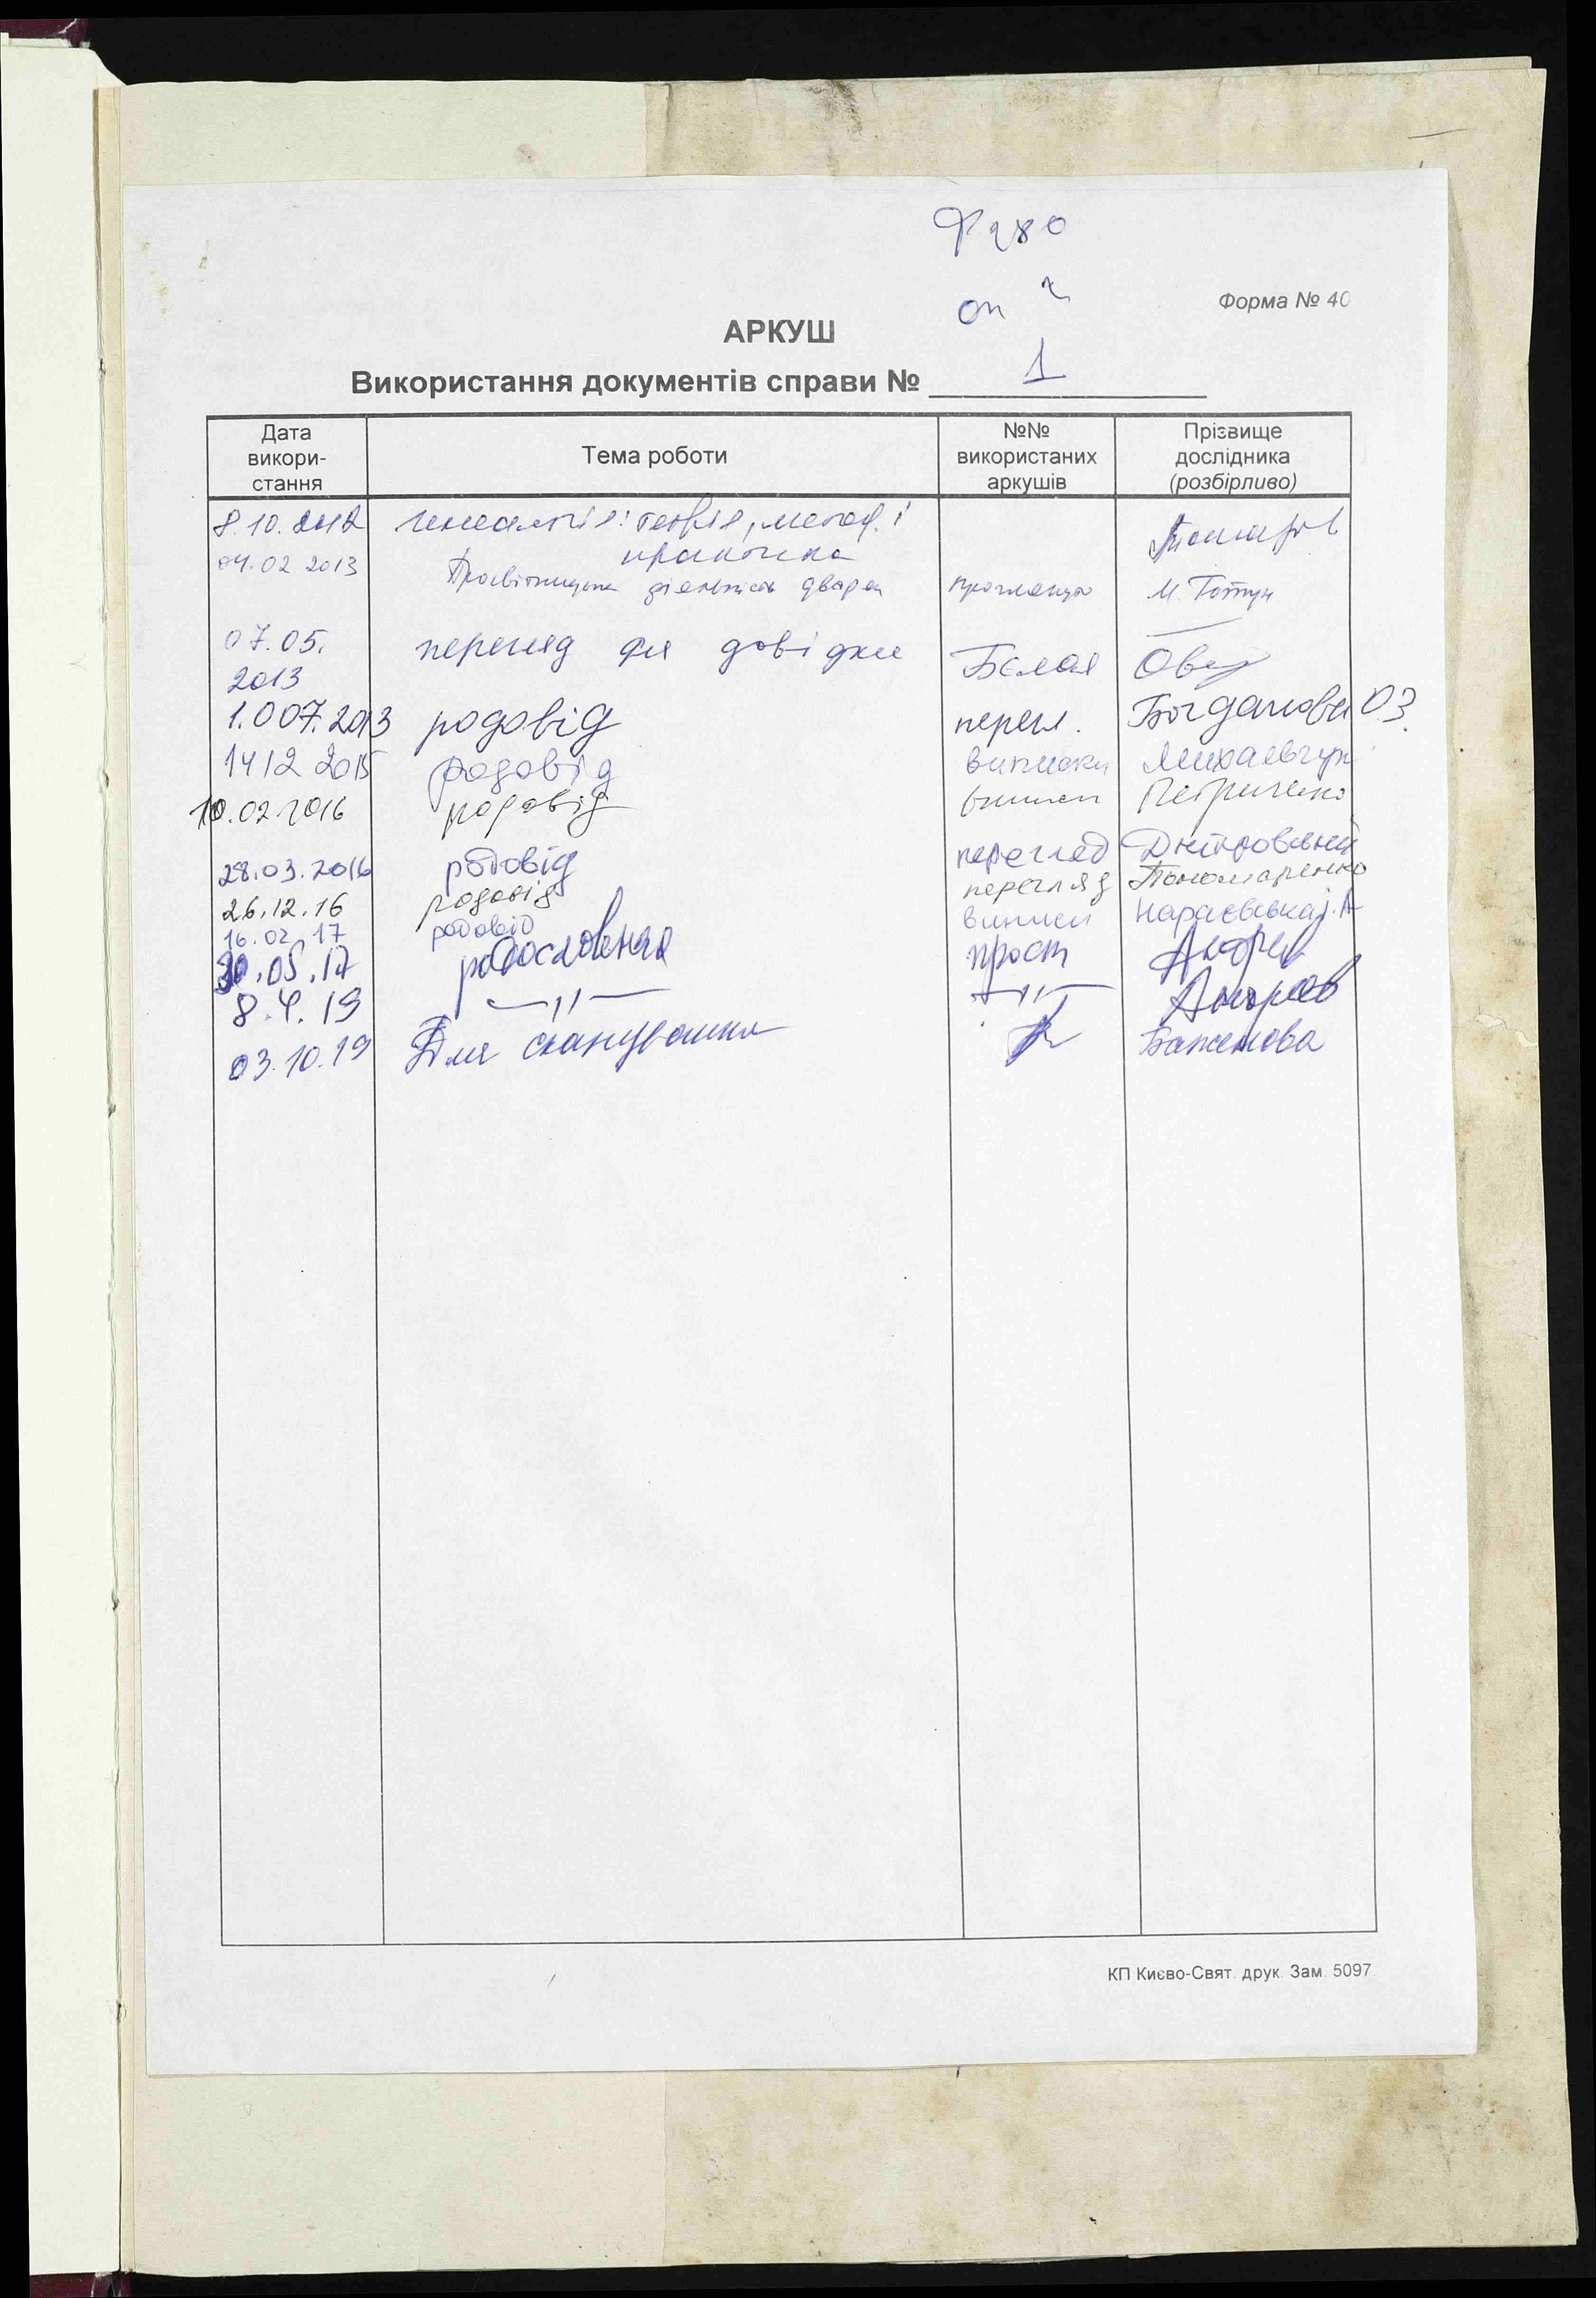 Ф 280
оп 2
Форма № 40
АРКУШ
Використання документів справи № 1
Дата викори-стання Тема роботи №№ використаних аркушів Прізвище дослідника (розбірливо)
8.10.2012 генеалогія: теорія, метод. і
практика
04.02 2013 Просвітницька діяльність дворян М.
07.05. перегляд для довідки Бєлая
2013
1.007.2013 родовід перегл. Богданова О.З.
14 12 2015 родовід виписки Михальчук
10.02.2016 родовід виписи Петриченко
28.03.2016 родовід перегляд
26.12.16 родовід перегляд Пономаренко
16.02.17 родовід виписи Нараєвська І.А
30.05.17 родословная прост Андреев
8.4.19 —//— —//— Андреев
03.10.19 Для сканування Баженова
КП Києво-Свят. друк. Зам. 5097.